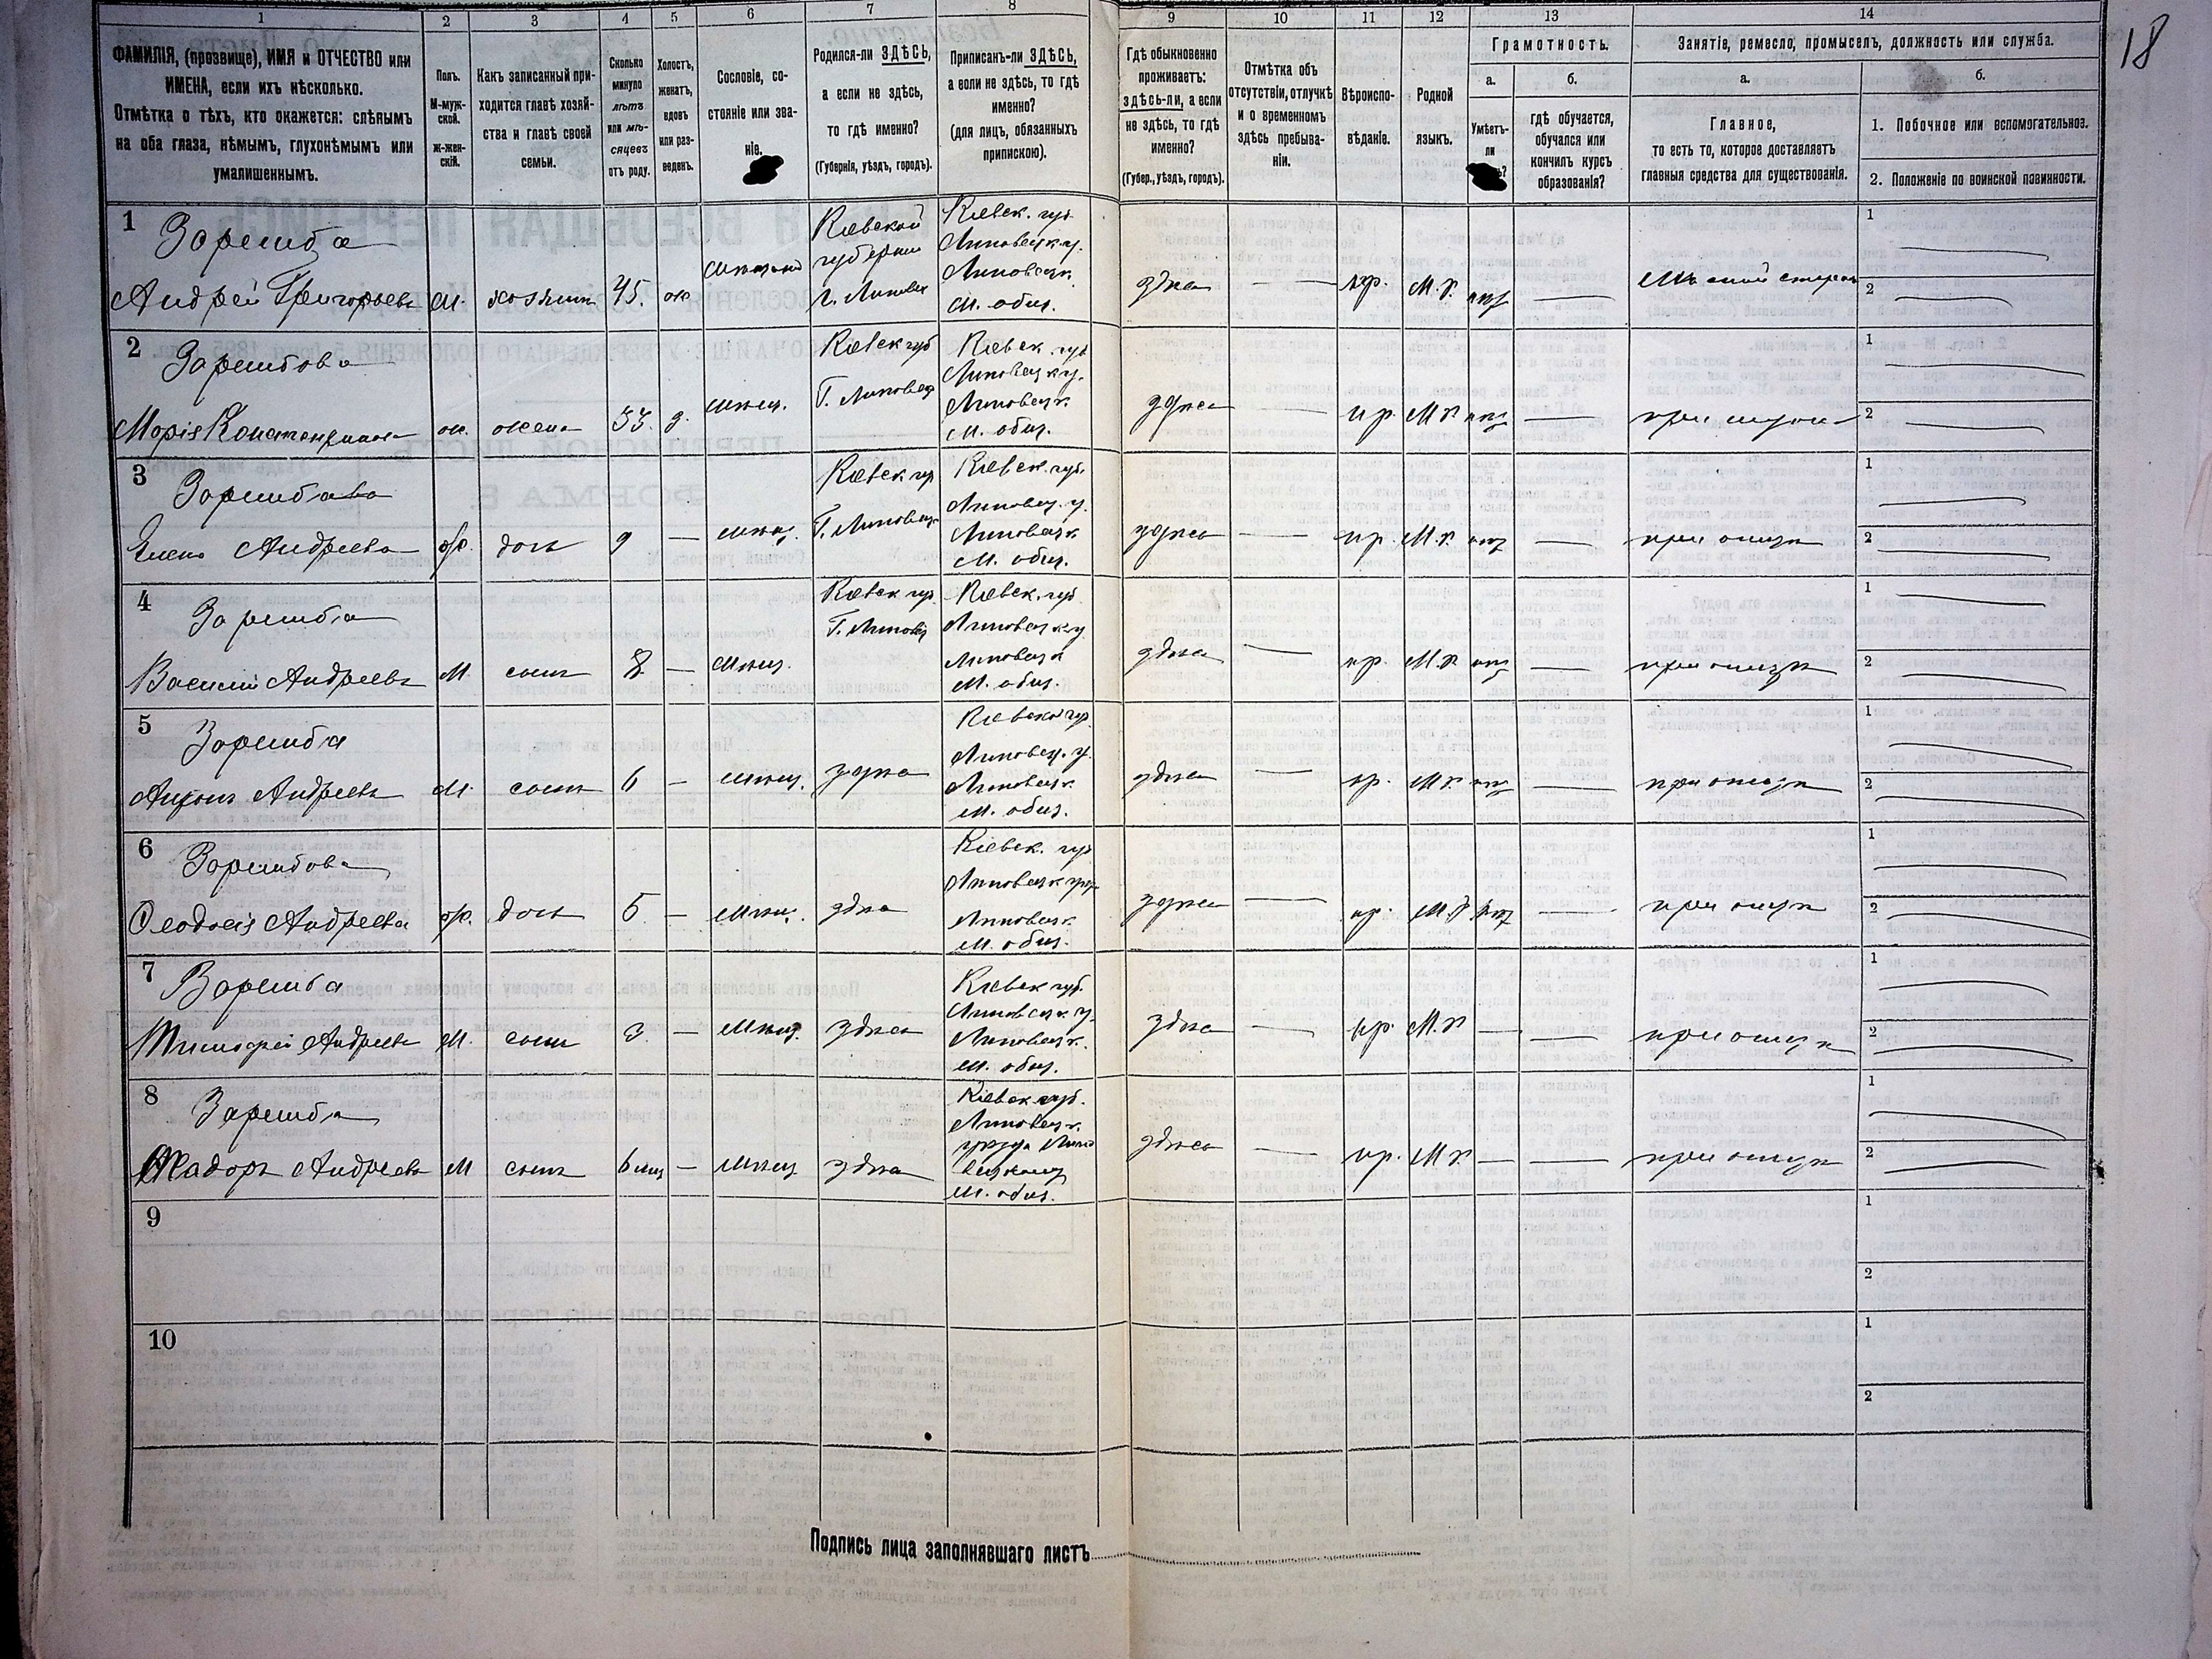 18
1 2. 3 4 5 6 7 8 9 10 11 12 13 14
ФАМИЛІЯ, (прозвище), ИМЯ и ОТЧЕСТВО или
ИМЕНА, если ихъ нѣсколько.
Отмѣтка о тѣхъ, кто окажется: слѣпымъ
на оба глаза, нѣмымъ, глухонѣмымъ или
умалишеннымъ.
Полъ.
М-муж-
ской.
ж-жен-
скій.
Какъ записанный при-
ходится главѣ хозяй-
ства и главѣ своей
семьи.
Сколько
минуло
лѣтъ
или мѣ-
сяцевъ
отъ роду.
Холостъ,
женатъ,
вдовъ
или раз-
веденъ.
Сословіе, со-
стояніе или зва-
ніе.
Родился-ли ЗДѢСЬ,
а если не здѣсь,
то гдѣ именно?
(Губернія, уѣздъ, городъ).
Приписанъ-ли ЗДѢСЬ,
а если не здѣсь, то гдѣ
именно?
(для лицъ, обязанныхъ
припискою).
Гдѣ обыкновенно
проживаетъ:
здѣсь-ли, а если
не здѣсь, то гдѣ
именно?
(Губер., уѣздъ, городъ).
Отмѣтка объ
отсутствіи, отлучкѣ
и о временномъ
здѣсь пребыва-
ніи.
Вѣроиспо-
вѣданіе.
Родной
языкъ.
Грамотность.
а.
Умѣетъ-
ли
б.
гдѣ обучается,
обучался или
кончилъ курсъ
образованія?
Занятіе, ремесло, промыселъ, должность или служба.
а.
Главное,
то есть то, которое доставляетъ
главныя средства для существованія.
б.
1. Побочное или вспомогательное.
2. Положеніе по воинской повинности.
1
Заремба
Андрей Григорьевъ м. хозяинъ 45. ж
Кіевской
губерніи
г. Липовец
Кіевск. губ.
Липовецк у.
Липовецк.
м. общ.
здѣсь — пр. М.Р. —
1
2
2
Зарембова
Марія Константинова ж. жена 33. з. мѣщ.
Кіевск губ
Г. Липовец
Кіевск. губ
Липовецк у.
Липовецк.
м. общ.
здѣсь — пр. М Р —
1
2
3
Зарембова
Елена Андреева ж. дочь 9 — мѣщ.
Кіевск гу
Г. Липовец
Кіевск. губ.
Липовец. у.
Липовецк
м. общ.
здѣсь — пр. М.Р. — при отцѣ
1
2
4
Заремба
Василій Андреевъ М сынъ 8 — мѣщ.
Кіевск гу
Г. Липовец
Кіевск. губ
Липовецк у
Липовецк
м. общ.
здѣсь — пр. М.Р. — при отцѣ
1
2
5
Заремба
Андреевъ М. сынъ 6 — мѣщ. здѣсь
Кіевской гу.
Липовец. у.
Липовецк.
м. общ.
здѣсь — пр. М.Р. — при отцѣ
1
2
6
Зарембова
Ѳеодосія Андреева ж. дочь 5 — мѣщ. здѣсь
Кіевск. гу
Липовецк
Липовецк.
м. общ.
здѣсь — пр. М.Р — при отцѣ
1
2
7
Заремба
Тимофей Андреевъ М. сынъ 3. — мѣщ. здѣсь
Кіевск губ.
Липовецк у.
Липовецк.
м. общ.
здѣсь — пр. М.Р — — при отцѣ
1
2
8
Заремба
Андреевъ М сынъ 6 мѣц — мѣщ здѣсь
Кіевск губ.
Липовецк.
уѣзда Липо
вецкому
м. общ.
здѣсь — пр. М.Р. — — при отцѣ
1
2
9
1
2
10
1
2
Подпись лица заполнявшаго листъ